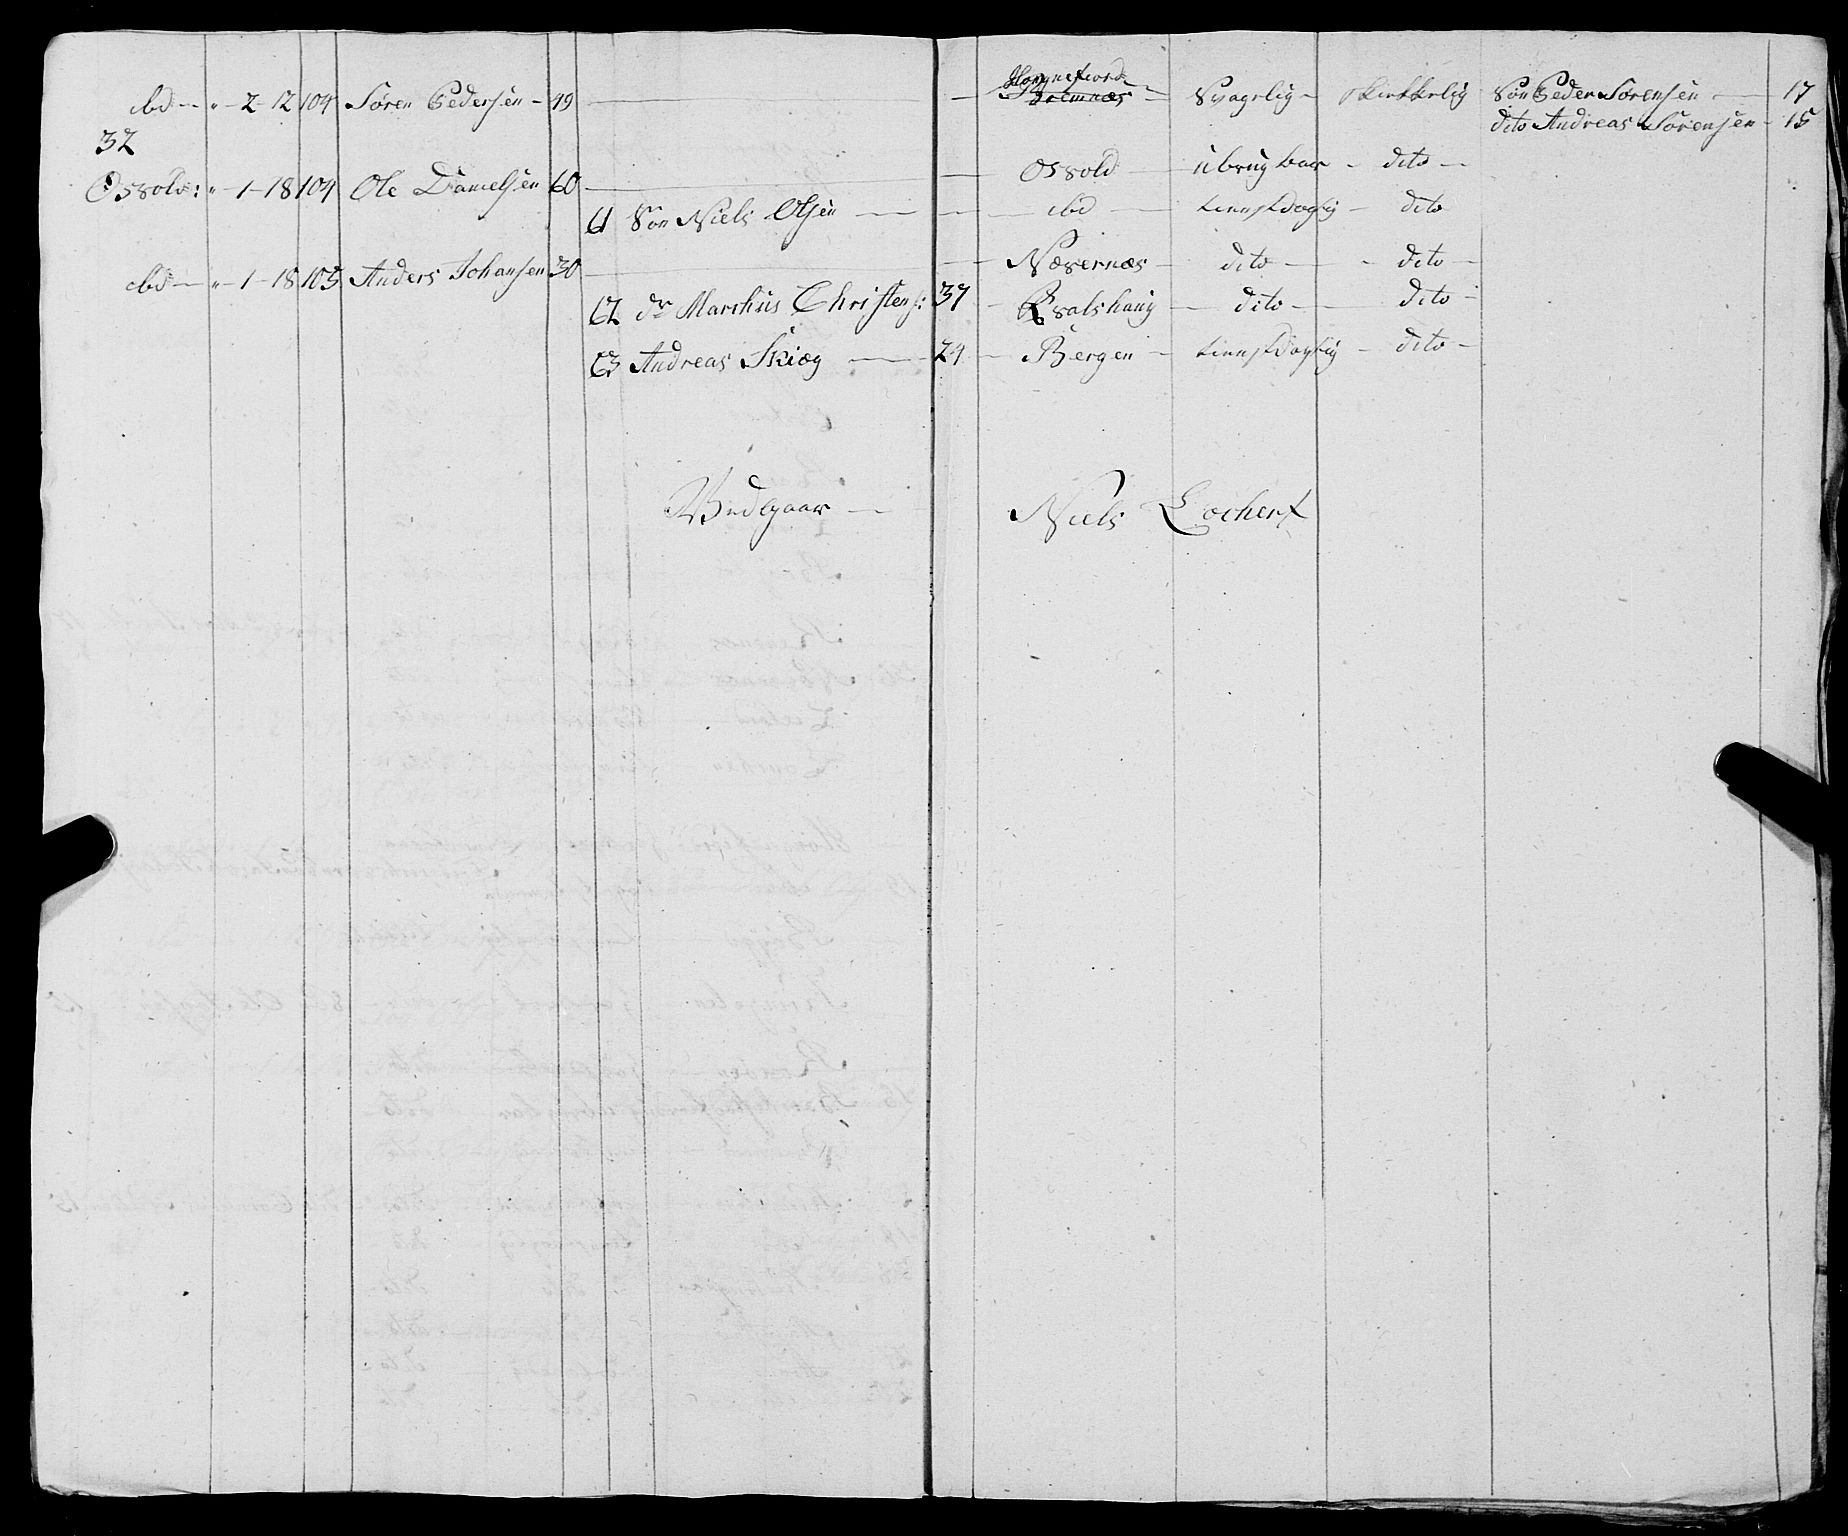 ibd — " — 2 — 12 104 Søren Pedersen — 49 — Hognefiord Svagelig — skikkelig Søn Peder Sørensen — 17
Bremnæs dito Andreas Sørensen — 15
32
Osvold: " — 1 — 18 104 Ole Danielsen 60 — Osvold — ubrugbar — dito —
61 Søn Niels Olsen — ibd — tienstdygtig — dito
ibd — " — 1 — 18 103 Anders Johansen 30 — Næsernæs — dito — dito —
62 dr Marchus Christens: 37 — — dito — dito —
63 Andreas Skiæg — 24 — Bergen — tienstdygtig — dito —
Vedgaar — Niels Lochert